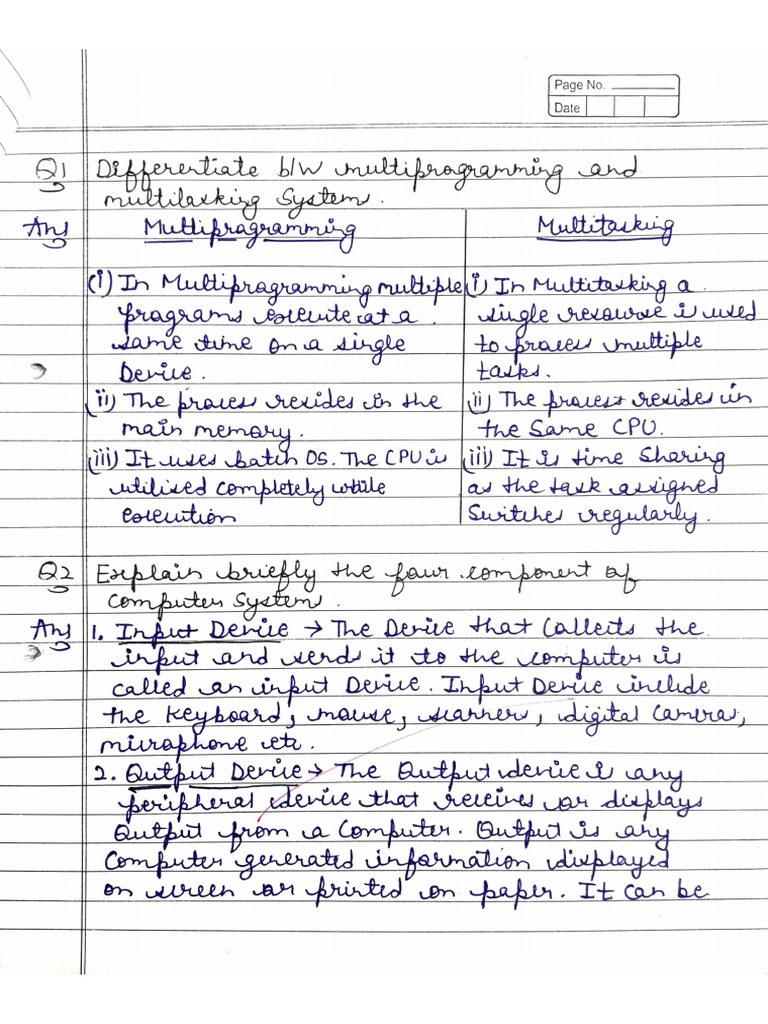 Page No.
Date
Q1 Differentiate b/w multiprogramming and
multitasking System.
Ans Multiprogramming Multitasking
(i) In Multiprogramming multiple (i) In Multitasking a
programs execute at a single resource is used
same time on a single to process multiple
Device. tasks.
(ii) The process resides in the (ii) The process resides in
main memory. the Same CPU.
(iii) It uses batch OS. The CPU is (iii) It is time Sharing
utilised completely while as the task assigned
execution Switches regularly.
Q2 Explain briefly the four component of
Computer System.
Ans 1. Input Device → The Device that Collects the
input and sends it to the computer is
called an input Device. Input Device include
the Keyboard, mouse, scanners, digital Cameras,
microphone etc.
2. Output Device → The Output device is any
peripheral device that receives or displays
Output from a Computer. Output is any
Computer generated information displayed
on screen or printed on paper. It can be